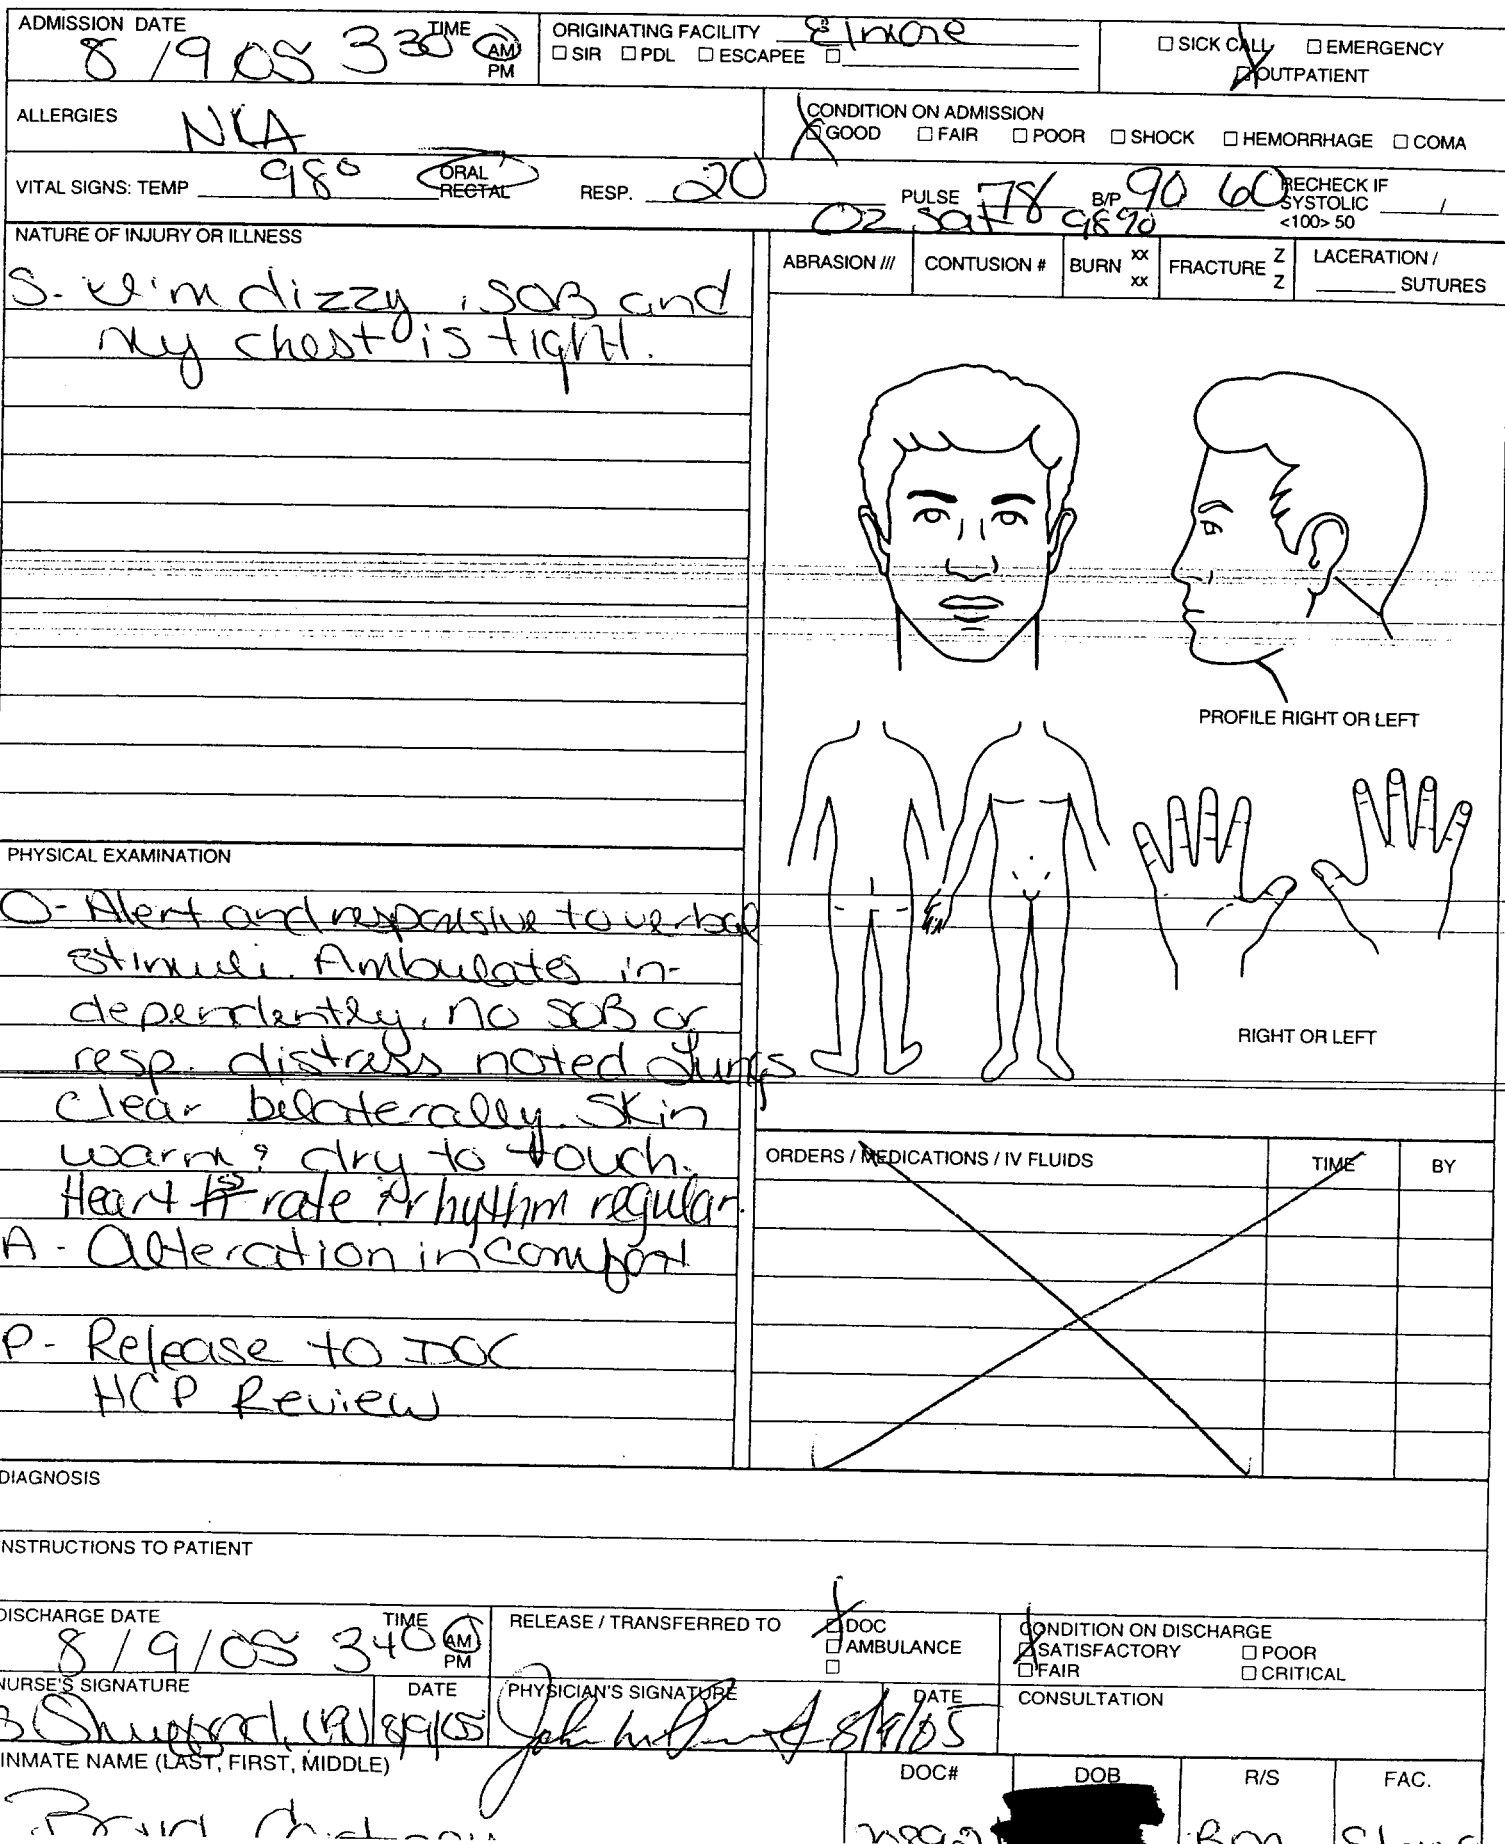 ADMISSION DATE TIME ORIGINATING FACILITY Elmore
8 / 9 05 330 AM PM
☐ SIR ☐ PDL ☐ ESCAPEE ☐
☐ SICK CALL ☐ EMERGENCY
☐ OUTPATIENT
ALLERGIES NKA
CONDITION ON ADMISSION
☐ GOOD ☐ FAIR ☐ POOR ☐ SHOCK ☐ HEMORRHAGE ☐ COMA
VITAL SIGNS: TEMP 98° ORAL RECTAL RESP. 20 PULSE 78 B/P 90 60 RECHECK IF SYSTOLIC / <100> 50
O2 sat 98%
NATURE OF INJURY OR ILLNESS
S- I'm dizzy, SOB and
my chest is tight.
ABRASION /// CONTUSION # BURN xx xx FRACTURE Z Z LACERATION / SUTURES
PROFILE RIGHT OR LEFT
RIGHT OR LEFT
PHYSICAL EXAMINATION
O- Alert and responsive to verbal
stimuli. Ambulates in-
dependently, no SOB or
resp. distress noted Lungs
clear bilaterally. Skin
warm & dry to touch.
Heart rate & rhythm regular.
A- Alteration in comfort
P- Release to DOC
HCP Review
ORDERS / MEDICATIONS / IV FLUIDS TIME BY
DIAGNOSIS
INSTRUCTIONS TO PATIENT
DISCHARGE DATE TIME
8 / 9 / 05 340 AM PM
RELEASE / TRANSFERRED TO ☐ DOC
☐ AMBULANCE
☐
CONDITION ON DISCHARGE
☐ SATISFACTORY ☐ POOR
☐ FAIR ☐ CRITICAL
NURSE'S SIGNATURE DATE PHYSICIAN'S SIGNATURE DATE CONSULTATION
8/9/05 John 8/9/05
INMATE NAME (LAST, FIRST, MIDDLE) DOC# DOB R/S FAC.